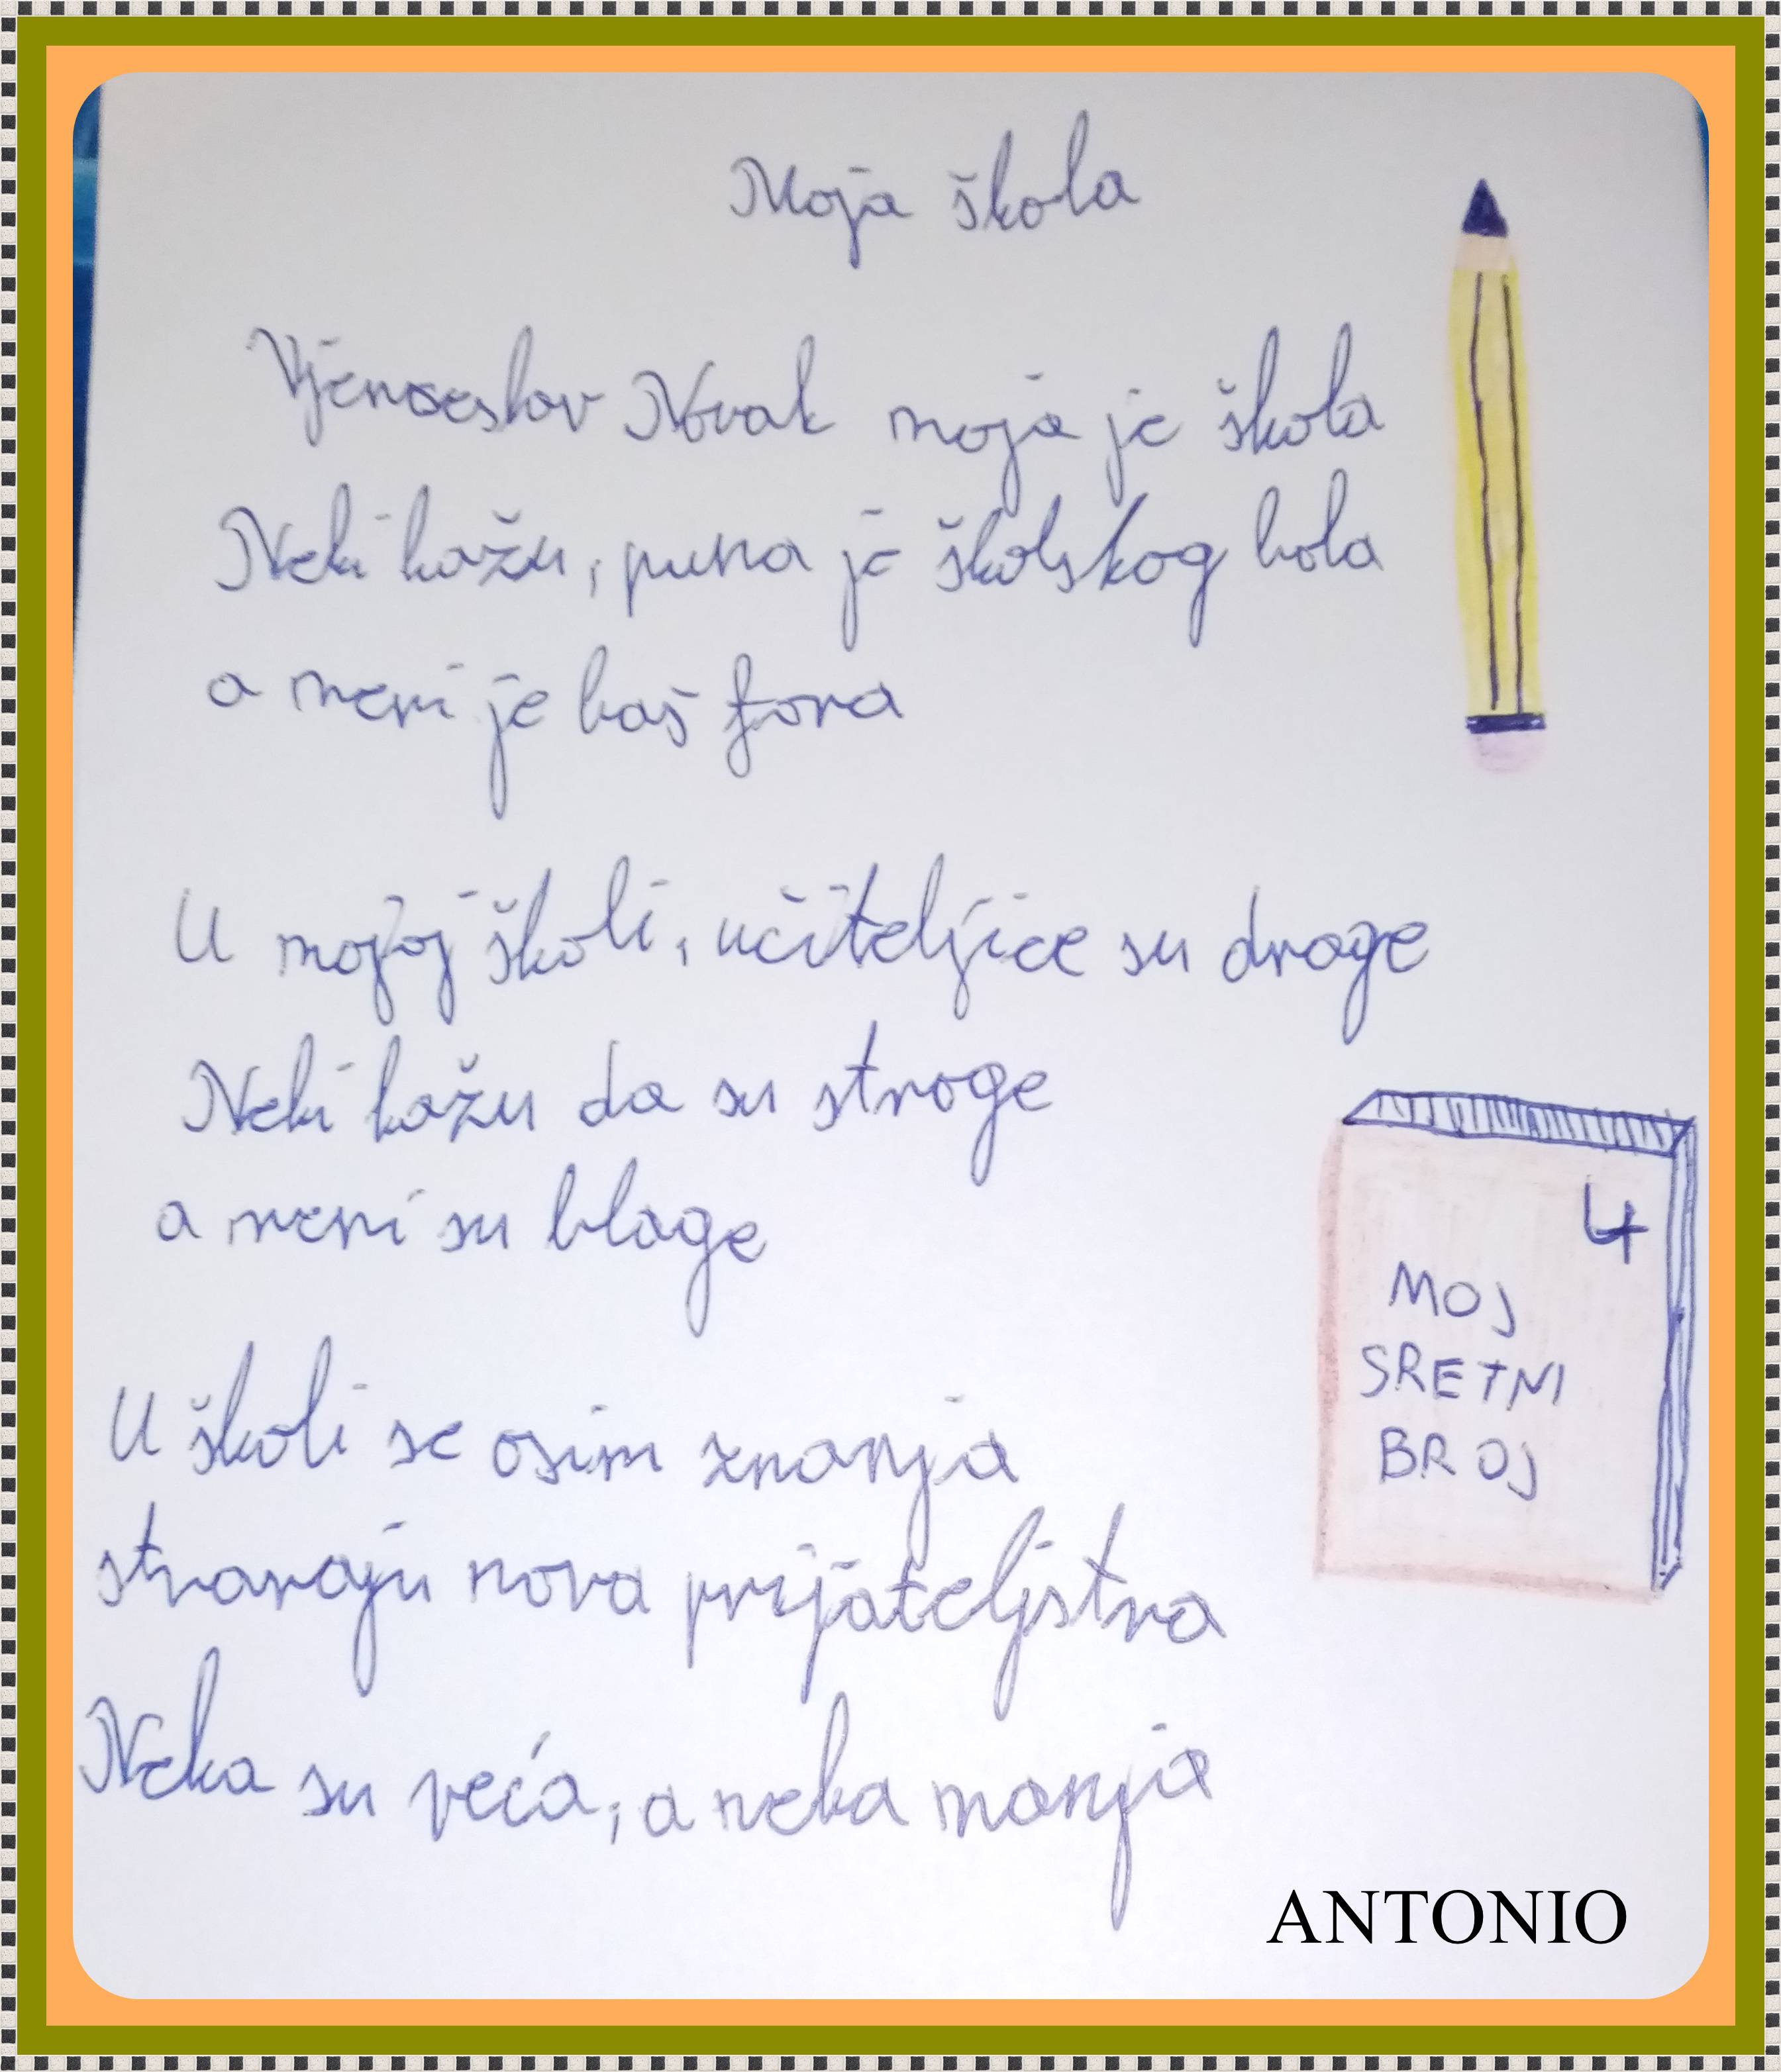 Moja škola
Vjenceslav Novak moja je škola
Neki kažu, puna je školskog bola
a meni je baš fora
U mojoj školi, učiteljice su drage
Neki kažu da su stroge
a meni su blage
U školi se osim znanja
stvaraju nova prijateljstva
Neka su veća, a neka manja
4
MOJ
SRETNI
BROJ
ANTONIO